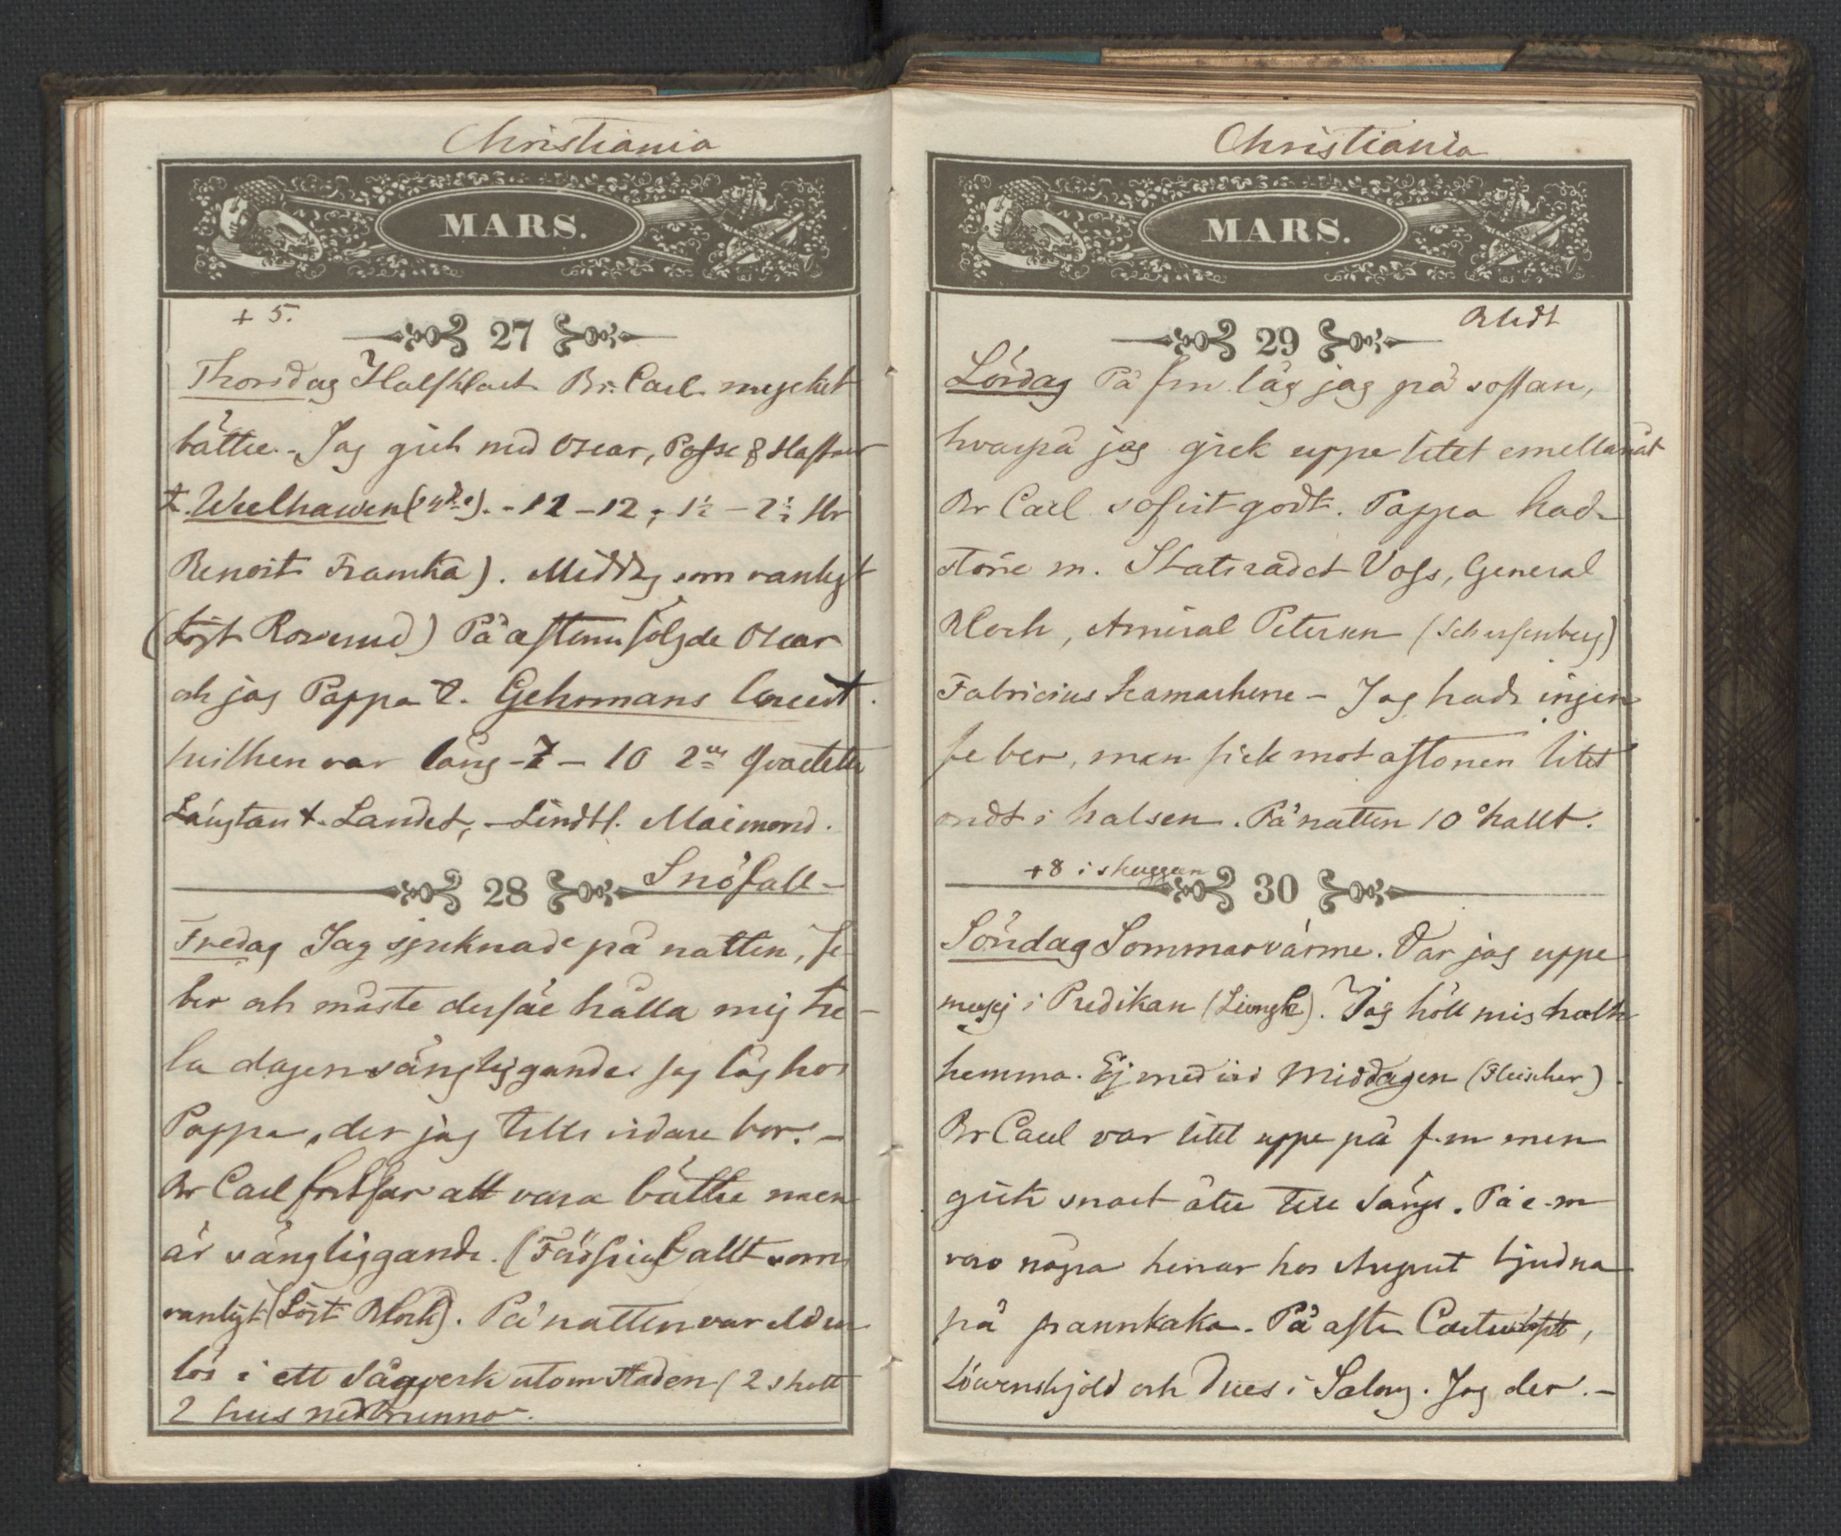 Christiania
MARS.
+ 5.
27
Thorsdag Halfklart Br. Carl mycket
bättre. - Jag gick med Oscar, Posse &
t. Welhawen - 11 - 12; 1½ - 2½ Hr
Benoit Framka). Middag som vanligt
(Löjt Rosensvd) På aftonen följde Oscar
och jag Pappa t. Gehrmans Concert.
hvilken var lång - 7 - 10 2ne Qvartetter
Längtan t. Landet, - Lindbl. Maimond.
28
Snöfall -
Fredag Jag sjuknade på natten, fe-
ber och måste derföre hålla mig he-
la dagen sängliggande. Jag låg hos
Pappa, der jag tills vidare bor. -
Br Carl fortfar att vara bättre men
är sängliggande. allt som
vanligt (Löjt Block). På natten var elden
lös i ett Sågverk utom staden (2 skott
2 hus nedbrunno.
Christiania
MARS.
29
Lördag På fm låg jag på soffan,
hvarpå jag gick uppe litet emellanåt
Br Carl sofvit godt. Pappa hade
större m. Statsrådet Voss, General
Bloch, Amiral Petersen (Scharfenberg)
Fabricius Kamarherre - Jag hade ingen
feber, men fick mot aftonen litet
ondt i halsen. På natten 10° kallt.
+8 i skuggan
30
Söndag Sommarvärme. Var jag uppe
men ej i Predikan. Jag höll mig
hemma. Ej med vid Middagen (Fleischer).
Br Carl var litet uppe på f.m men
gick snart åter till Sängs. På e.m
voro några herrar hos August bjudna
på pannkaka. På aften
Löwenskjöld och Dues i Salong. Jag der. -